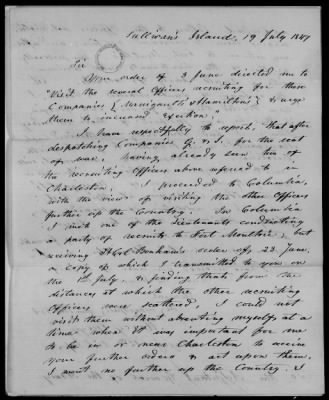 Sullivan's Island, 19 July 1847
Sir
Your order of 3 June directed me to
"Visit the several Officers recruiting for these
Companies { & Hamilton's } & urge
them to increased exertion."
I have respectfully to report, that after
despatching Companies G. & I. for the seat
of war, having already seen two of
the recruiting Officers above referred to in
Charleston, I proceeded to Columbia,
with the view of visiting the other Officers
further up the Country. In Columbia
I met one of the Lieutenants conducting
a party of recruits to Fort Moultrie; but
receiving Lt Col. Bonham's order of, 23 June,
a copy of which I transmitted to you on
the 1st July, & finding that from the
distances at which the other recruiting
Officers were scattered, I could not
visit them without absenting myself at a
time when it was important for me
to be in or near Charleston to receive
your further orders & act upon them,
I went no further up the Country. I